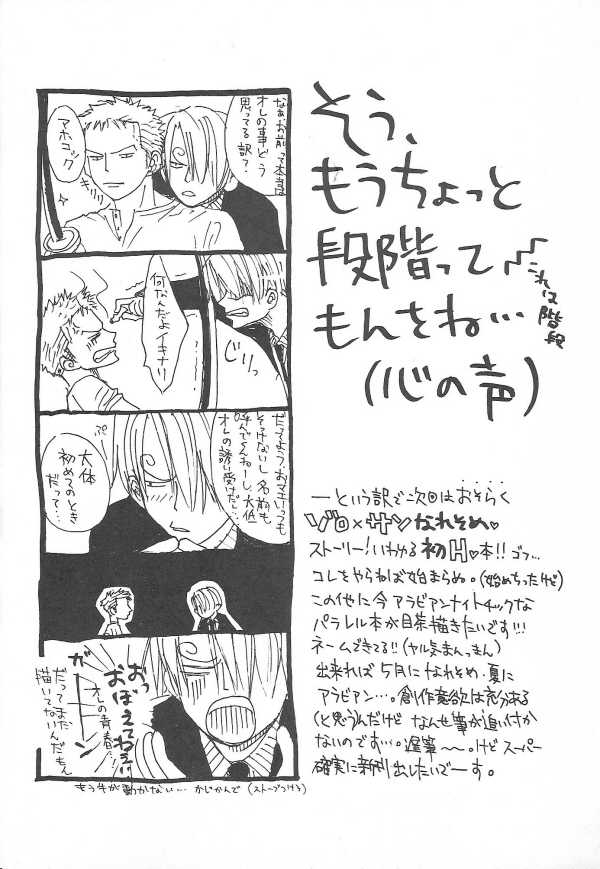 なぁ、お前って本当は
オレの事どう
思ってる訳？
アホコック
きりっ
何なんだよイキナリ
じりっ
だってよう、おマエいっつも
そっけないし名前も
呼んでくんねーし、大体
オレの誘い受けだし…
ぷ
大体
初めてのとき
だって…
おっ
おぼえてねぇ!!
オレの青春…!
ガーン
だってまだ
描いてないんだもん
もう手が動かない… かじかんで (ストーブつけろ)
そう、
もうちょっと
段階って
もんをね…
(心の声)
これは階段
―という訳で次回はおそらく
ゾロ×サンなれそめ♥
ストーリー!いわゆる初H♥本!!ゴフ…
コレをやらねば始まらぬ。(始めちったけど)
この他に今アラビアンナイトチックな
パラレル本が目茶描きたいです!!!
ネームできてる!!(ヤル気まんまん)
出来れば5月になれそめ、夏に
アラビアン…。創作意欲は充分ある
(と思う)んだけどなんせ筆が追い付か
ないのです…。遅筆〜〜。けどスーパー
確実に新刊出したいでーす。